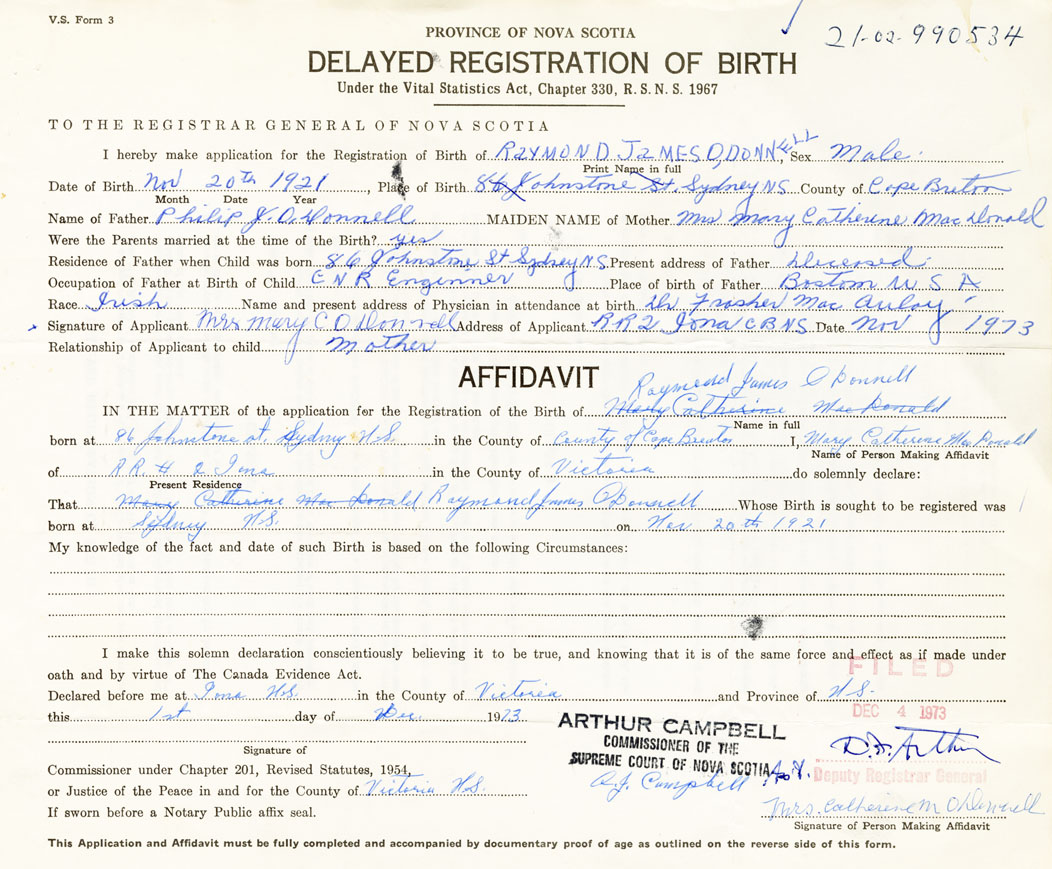 V.S. Form 3
21-02-990534
PROVINCE OF NOVA SCOTIA
DELAYED REGISTRATION OF BIRTH
Under the Vital Statistics Act, Chapter 330, R.S.N.S. 1967
TO THE REGISTRAR GENERAL OF NOVA SCOTIA
I hereby make application for the Registration of Birth of RAYMOND JAMES O,DONNELL, Sex Male.
Print Name in full
Date of Birth Nov 20th 1921, Place of Birth 86 Johnstone St. Sydney NS County of Cape Breton
Month Date Year
Name of Father Philip J. O.Donnell MAIDEN NAME of Mother Mrs Mary Catherine MacDonald
Were the Parents married at the time of the Birth? yes
Residence of Father when Child was born 86 Johnstone St Sydney N.S. Present address of Father Deceased.
Occupation of Father at Birth of Child C N R Enginner Place of birth of Father Bostom U S A
Race Irish Name and present address of Physician in attendance at birth Dr. Frasher Mac Auloy
Signature of Applicant Mrs Mary C O Donnell Address of Applicant RR2 Iona C B NS. Date Nov 1973
Relationship of Applicant to child Mother
AFFIDAVIT
Raymond James O Donnell
IN THE MATTER of the application for the Registration of the Birth of Mary Catherine MacDonald
Name in full
born at 86 Johnstone st. Sydney N.S. in the County of County of Cape Breton I, Mary Catherine MacDonald
Name of Person Making Affidavit
of R R # 2 Iona in the County of Victoria do solemnly declare:
Present Residence
That Mary Catherine MacDonald Raymond James O'Donnell Whose Birth is sought to be registered was
born at Sydney N.S. on Nov 20th 1921
My knowledge of the fact and date of such Birth is based on the following Circumstances:
I make this solemn declaration conscientiously believing it to be true, and knowing that it is of the same force and effect as if made under
oath and by virtue of The Canada Evidence Act.
FILED
Declared before me at Iona N.S. in the County of Victoria and Province of N.S.
this 1st day of Dec 1973
DEC 4 1973
ARTHUR CAMPBELL
COMMISSIONER OF THE
SUPREME COURT OF NOVA SCOTIA
D.F. Arthur
Signature of
Deputy Registrar General
Commissioner under Chapter 201, Revised Statutes, 1954,
A.J. Campbell
or Justice of the Peace in and for the County of Victoria N.S.
Mrs. Catherine M O'Donnell
If sworn before a Notary Public affix seal.
Signature of Person Making Affidavit
This Application and Affidavit must be fully completed and accompanied by documentary proof of age as outlined on the reverse side of this form.